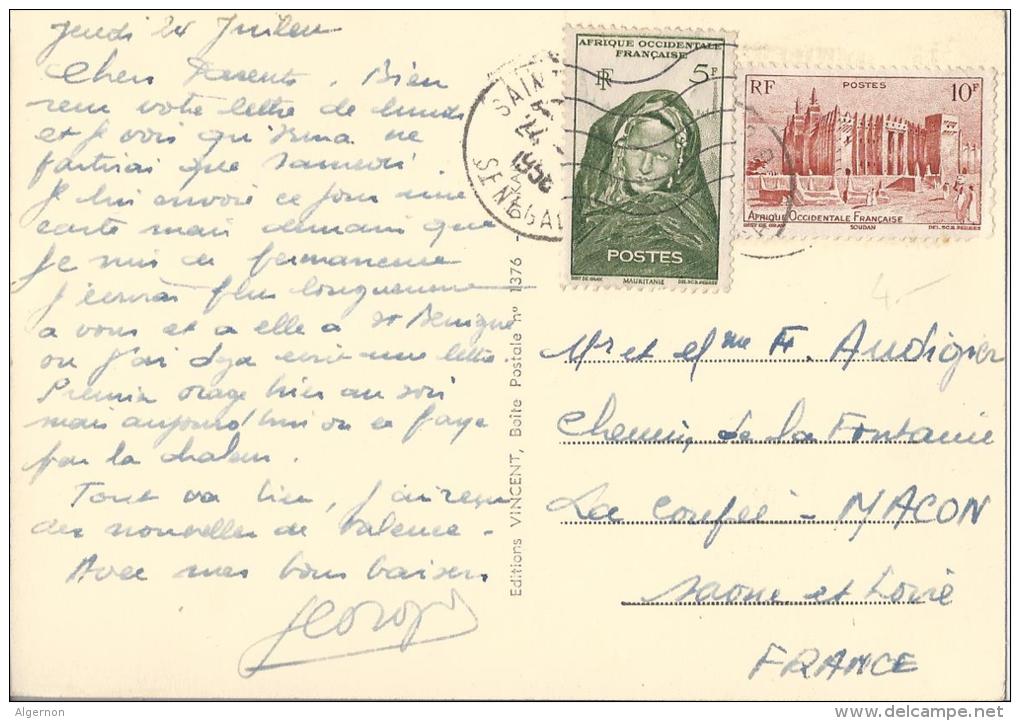 Jeudi 24 Juillet
Chers Parents. Bien
reçu votre lettre de lundi
et je vois qu'Irma ne
partirai que samedi
Je lui envoie ce jour une
carte mais demain que
je suis de permanence
J'écrirai plus longuement
a vous et a elle a St Benigne
ou j'ai deja ecrit une lettre
Premier orage hier au soir
mais aujourd'hui on le paye
par la chaleur.
Tout va bien, J'ai reçu
des nouvelles de Valence -
Avec mes bons baisers
Editions VINCENT, Boîte Postale n° 1376 -
SAINT
24
1958
SENEGAL
AFRIQUE OCCIDENTALE
FRANÇAISE
RF
5F
POSTES
MAURITANIE
RF
POSTES
10F
AFRIQUE OCCIDENTALE FRANÇAISE
SOUDAN
4.-
Mr et Mme Fr. Audigier
Chemin de la Fontaine
La Coupée - MACON
Saone et Loire
FRANCE
Algernon
www.delcampe.net